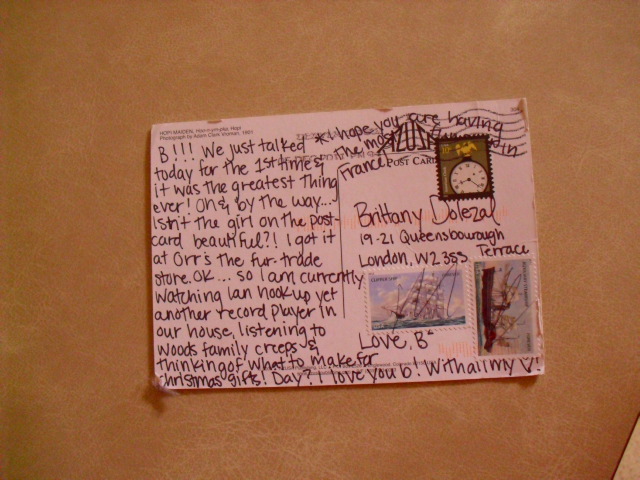 HOPI MAIDEN, Hopi
Photograph by Adam Clark Vroman, 1901
B!!! We just talked
today for the 1st time &
it was the greatest thing
ever! Oh & by the way...
Isn't the girl on the post
card beautiful?! I got it
at Orr's the fur-trade
store. OK... so I am currently
watching Ian hook up yet
another record player in
our house, listening to
Woods family creeps &
thinking of what to make for
christmas gifts! Day? I love you b! With all my ♡!
* I hope you are having
the most fun in
France
POST CARD
Brittany Dolezal
19-21 Queensbourough
Terrace
London, W2 3SS
CLIPPER SHIP
Love, B*